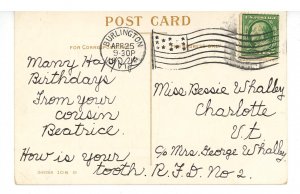 POST CARD
FOR CORRE
BURLINGTON
APR 25
9-30P
Many Happy
Birthdays
From your
cousin
Beatrice.
How is your
tooth.
Miss Bessie Whalley
Charlotte
Vt.
c/o Mrs. George Whalley
R.F.D No 2.